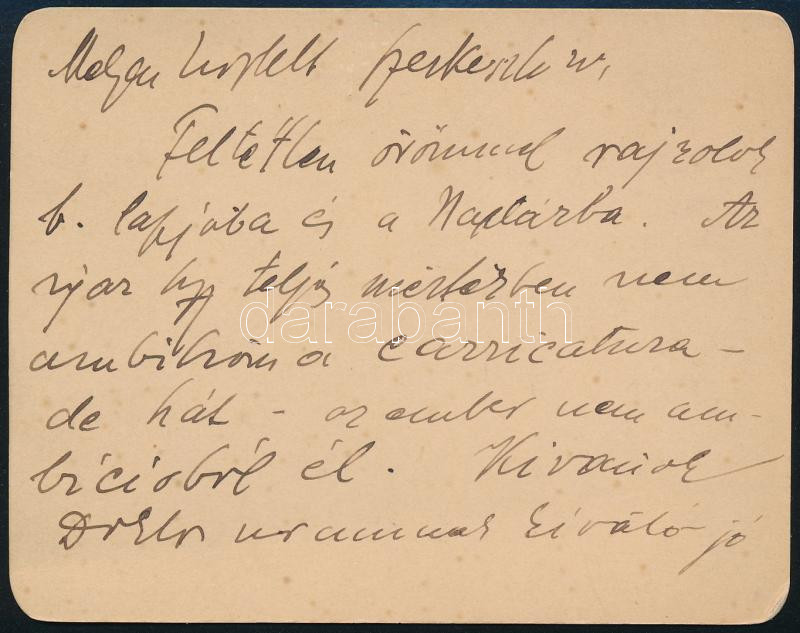 Mélyen tisztelt Szerkesztő úr,
Feltétlen örömmel rajzolok
b. lapjába és a Naptárba. Az
igaz hogy teljes mértékben nem
ambitióm a carricatura –
de hát – az ember nem am-
bícióból él. Kívánok
Doktor uramnak kíváló jó
darabanth